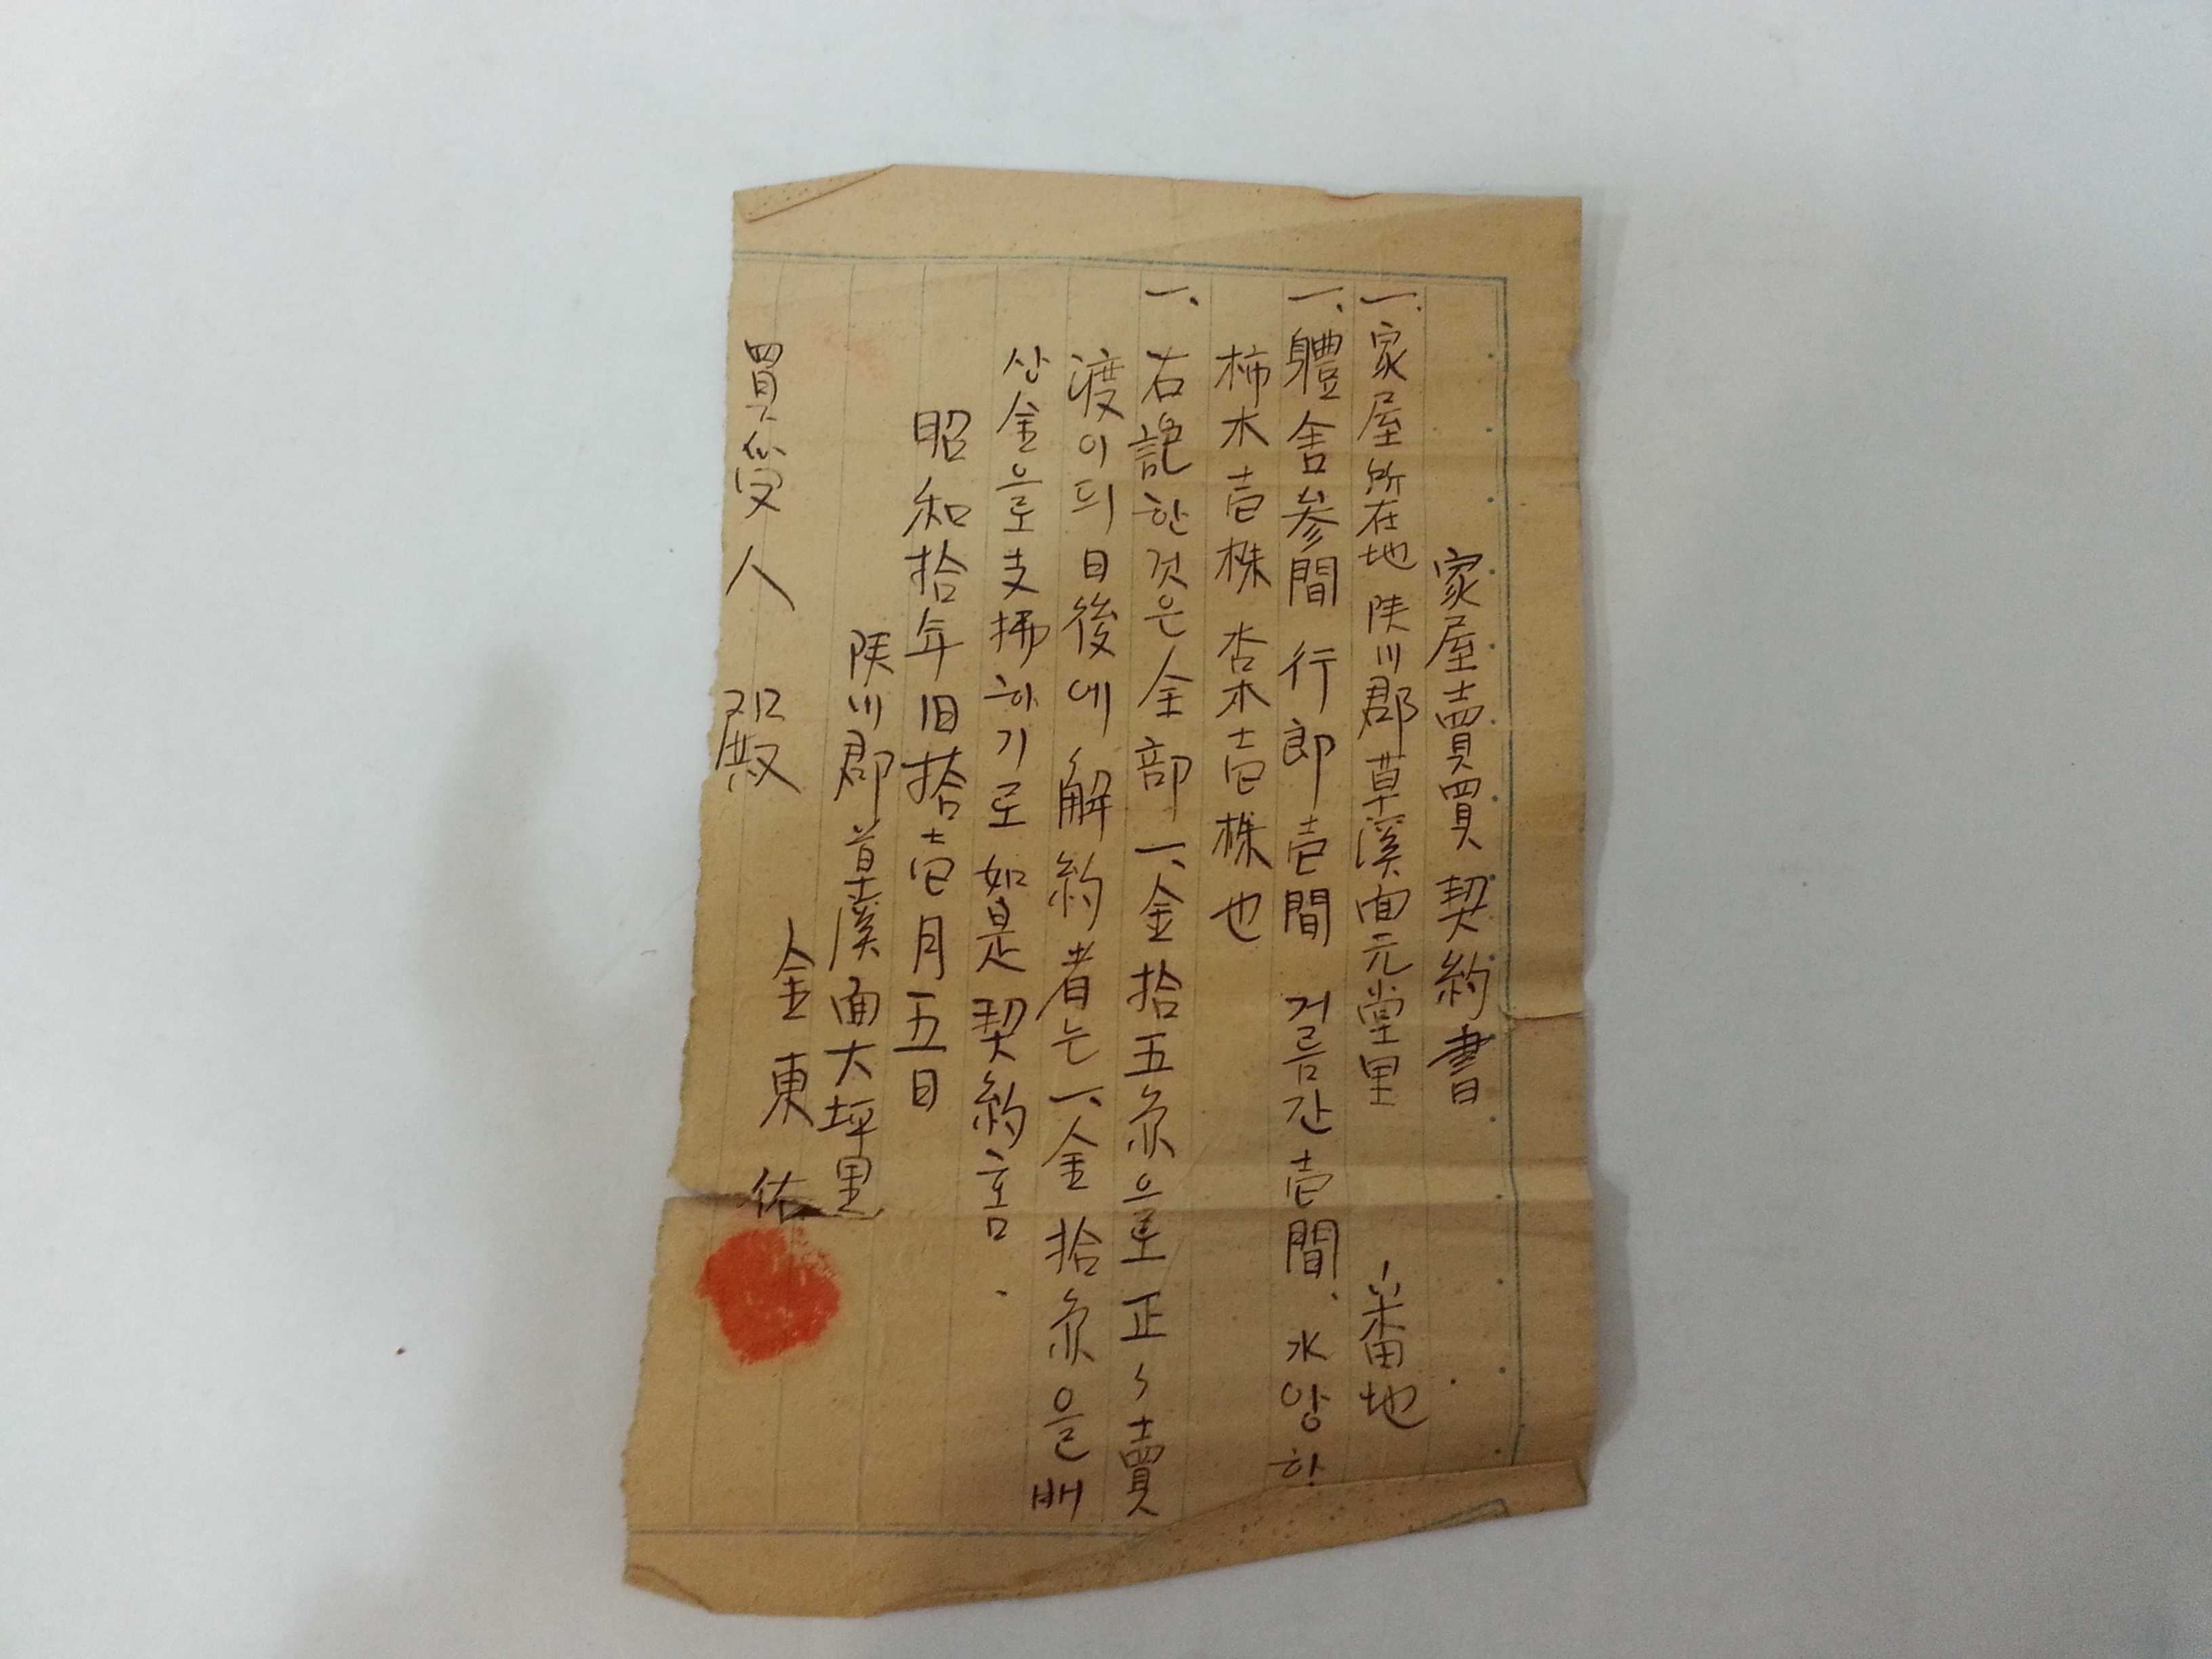 家屋賣買契約書
一. 家屋所在地 陜川郡草溪面元堂里 番地
一、軆舍参間 行郎壱間 거름간壱間、水양한
柿木壱株 杏木壱株也
一、右記한것은全部一、金拾五圓으로正々賣
渡이되日後에解約者는一、金拾圓을배
상金으로支拂하기로如是契約홈.
昭和拾年旧拾壱月五日
陜川郡草溪面大坪里
金東佑
買受人 殿